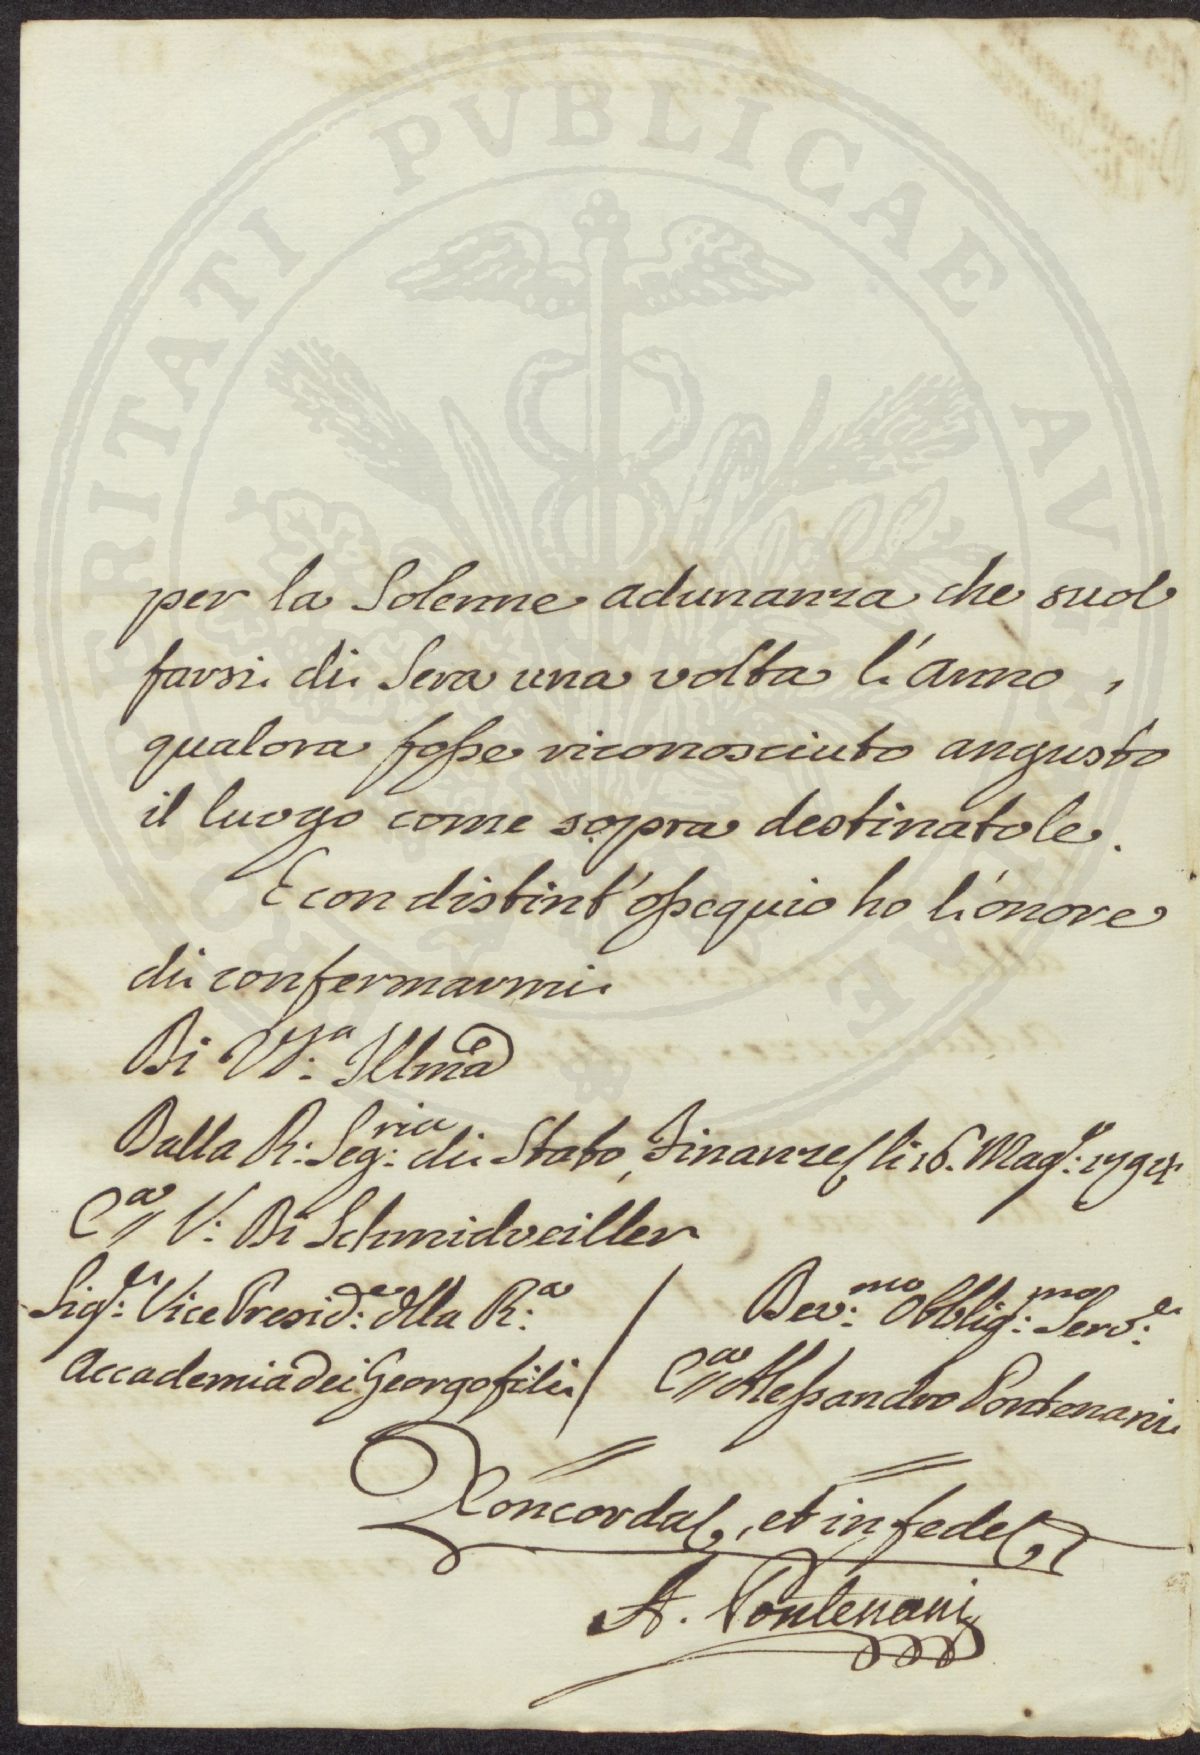 PROSPERITATI PUBLICAE AVGENDAE
per la Solenne adunanza che suol
farsi di Sera una volta l'Anno,
qualora fosse riconosciuto angusto
il luogo come sopra destinatole.
E con distint'ossequio ho l'onore
di confermarmi
Di VS:a Illma
Dalla R: Seg:ria di Stato, Finanze li 16. Mag: 1794
C:a V: Di Schmidveiller
Sig:re Vice Presid:e della R:a
Accademia dei Georgofili
Dev:mo Obblig:mo Serv:e
C:a Alessandro Pontenani
Concorda, et in fede
A. Pontenani